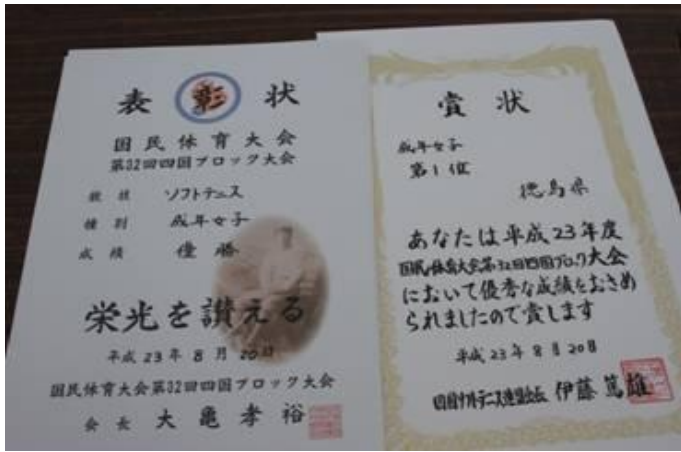 表彰状
国民体育大会
第32回四国ブロック大会
競技 ソフトテニス
種別 成年女子
成績 優勝
栄光を讃える
平成23年8月20日
国民体育大会第32回四国ブロック大会
会長 大亀孝裕
賞状
成年女子
第1位
徳島県
あなたは平成23年度
国民体育大会第32回四国ブロック大会
において優秀な成績をおさめ
られましたので賞します
平成23年8月20日
四国ソフトテニス連盟会長 伊藤篤雄